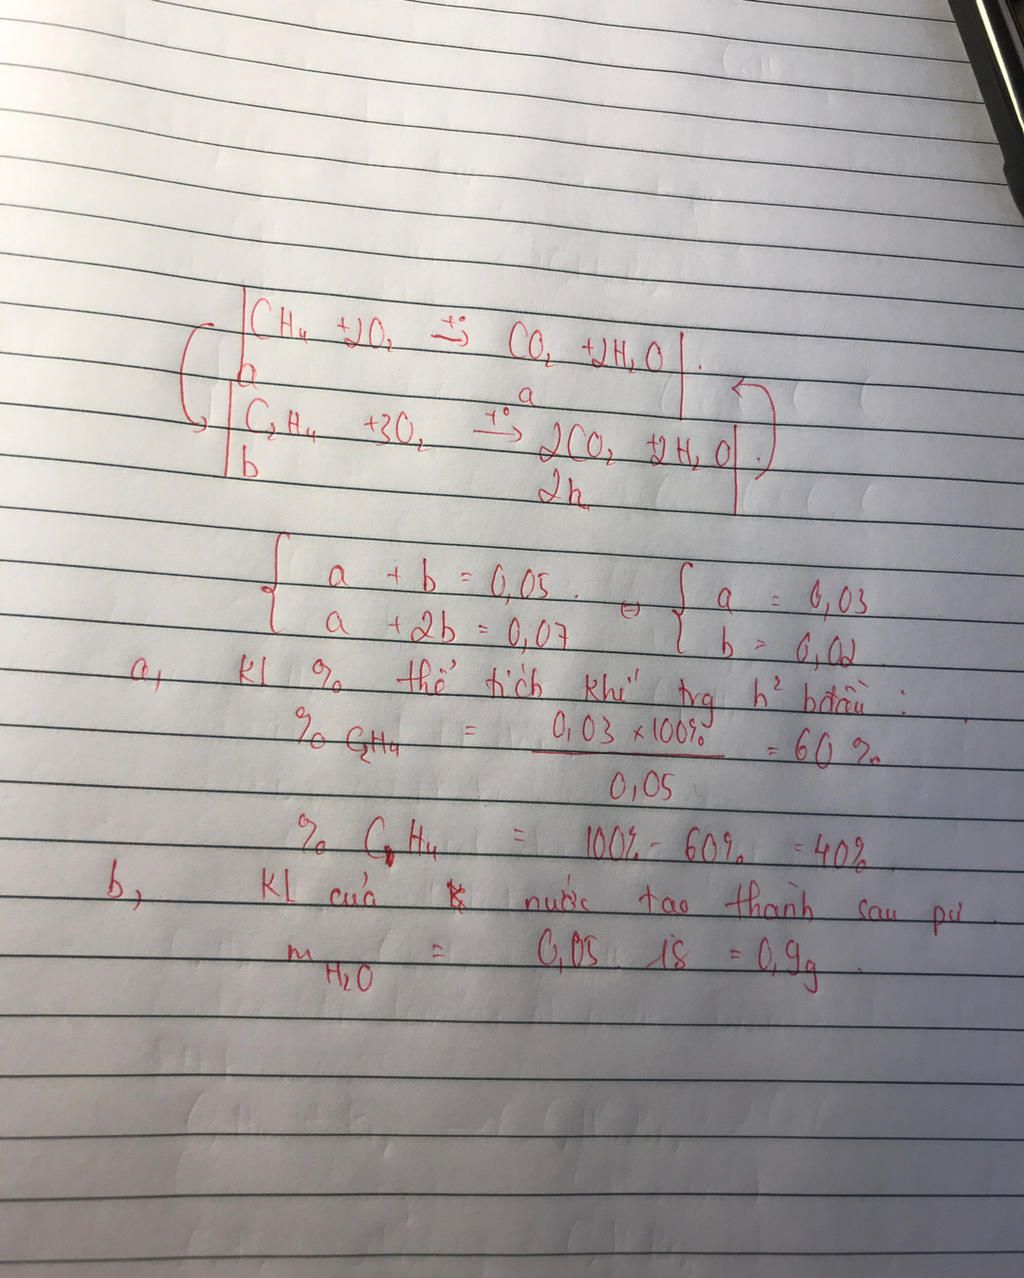 CH₄ +2O₂ →t° CO₂ +2H₂O
a a
C₂H₄ +3O₂ →t° 2CO₂ +2H₂O
b 2b
a + b = 0,05. ⇔ a = 0,03
a + 2b = 0,07 b = 0,02
a, kl % thể tích khí trg h² bđầu :
% C₂H₄ = 0,03 x 100% / 0,05 = 60%
% C₂H₄ = 100% - 60% = 40%
b, Kl của nước tạo thành sau pư.
m H2O = 0,05. 18 = 0,9g.